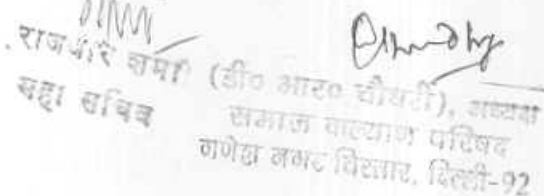 राजवीर शर्मा (डी० आर० चौधरी), अध्यक्ष
महा सचिव समाज कल्याण परिषद
गणेश नगर विस्तार, दिल्ली-92